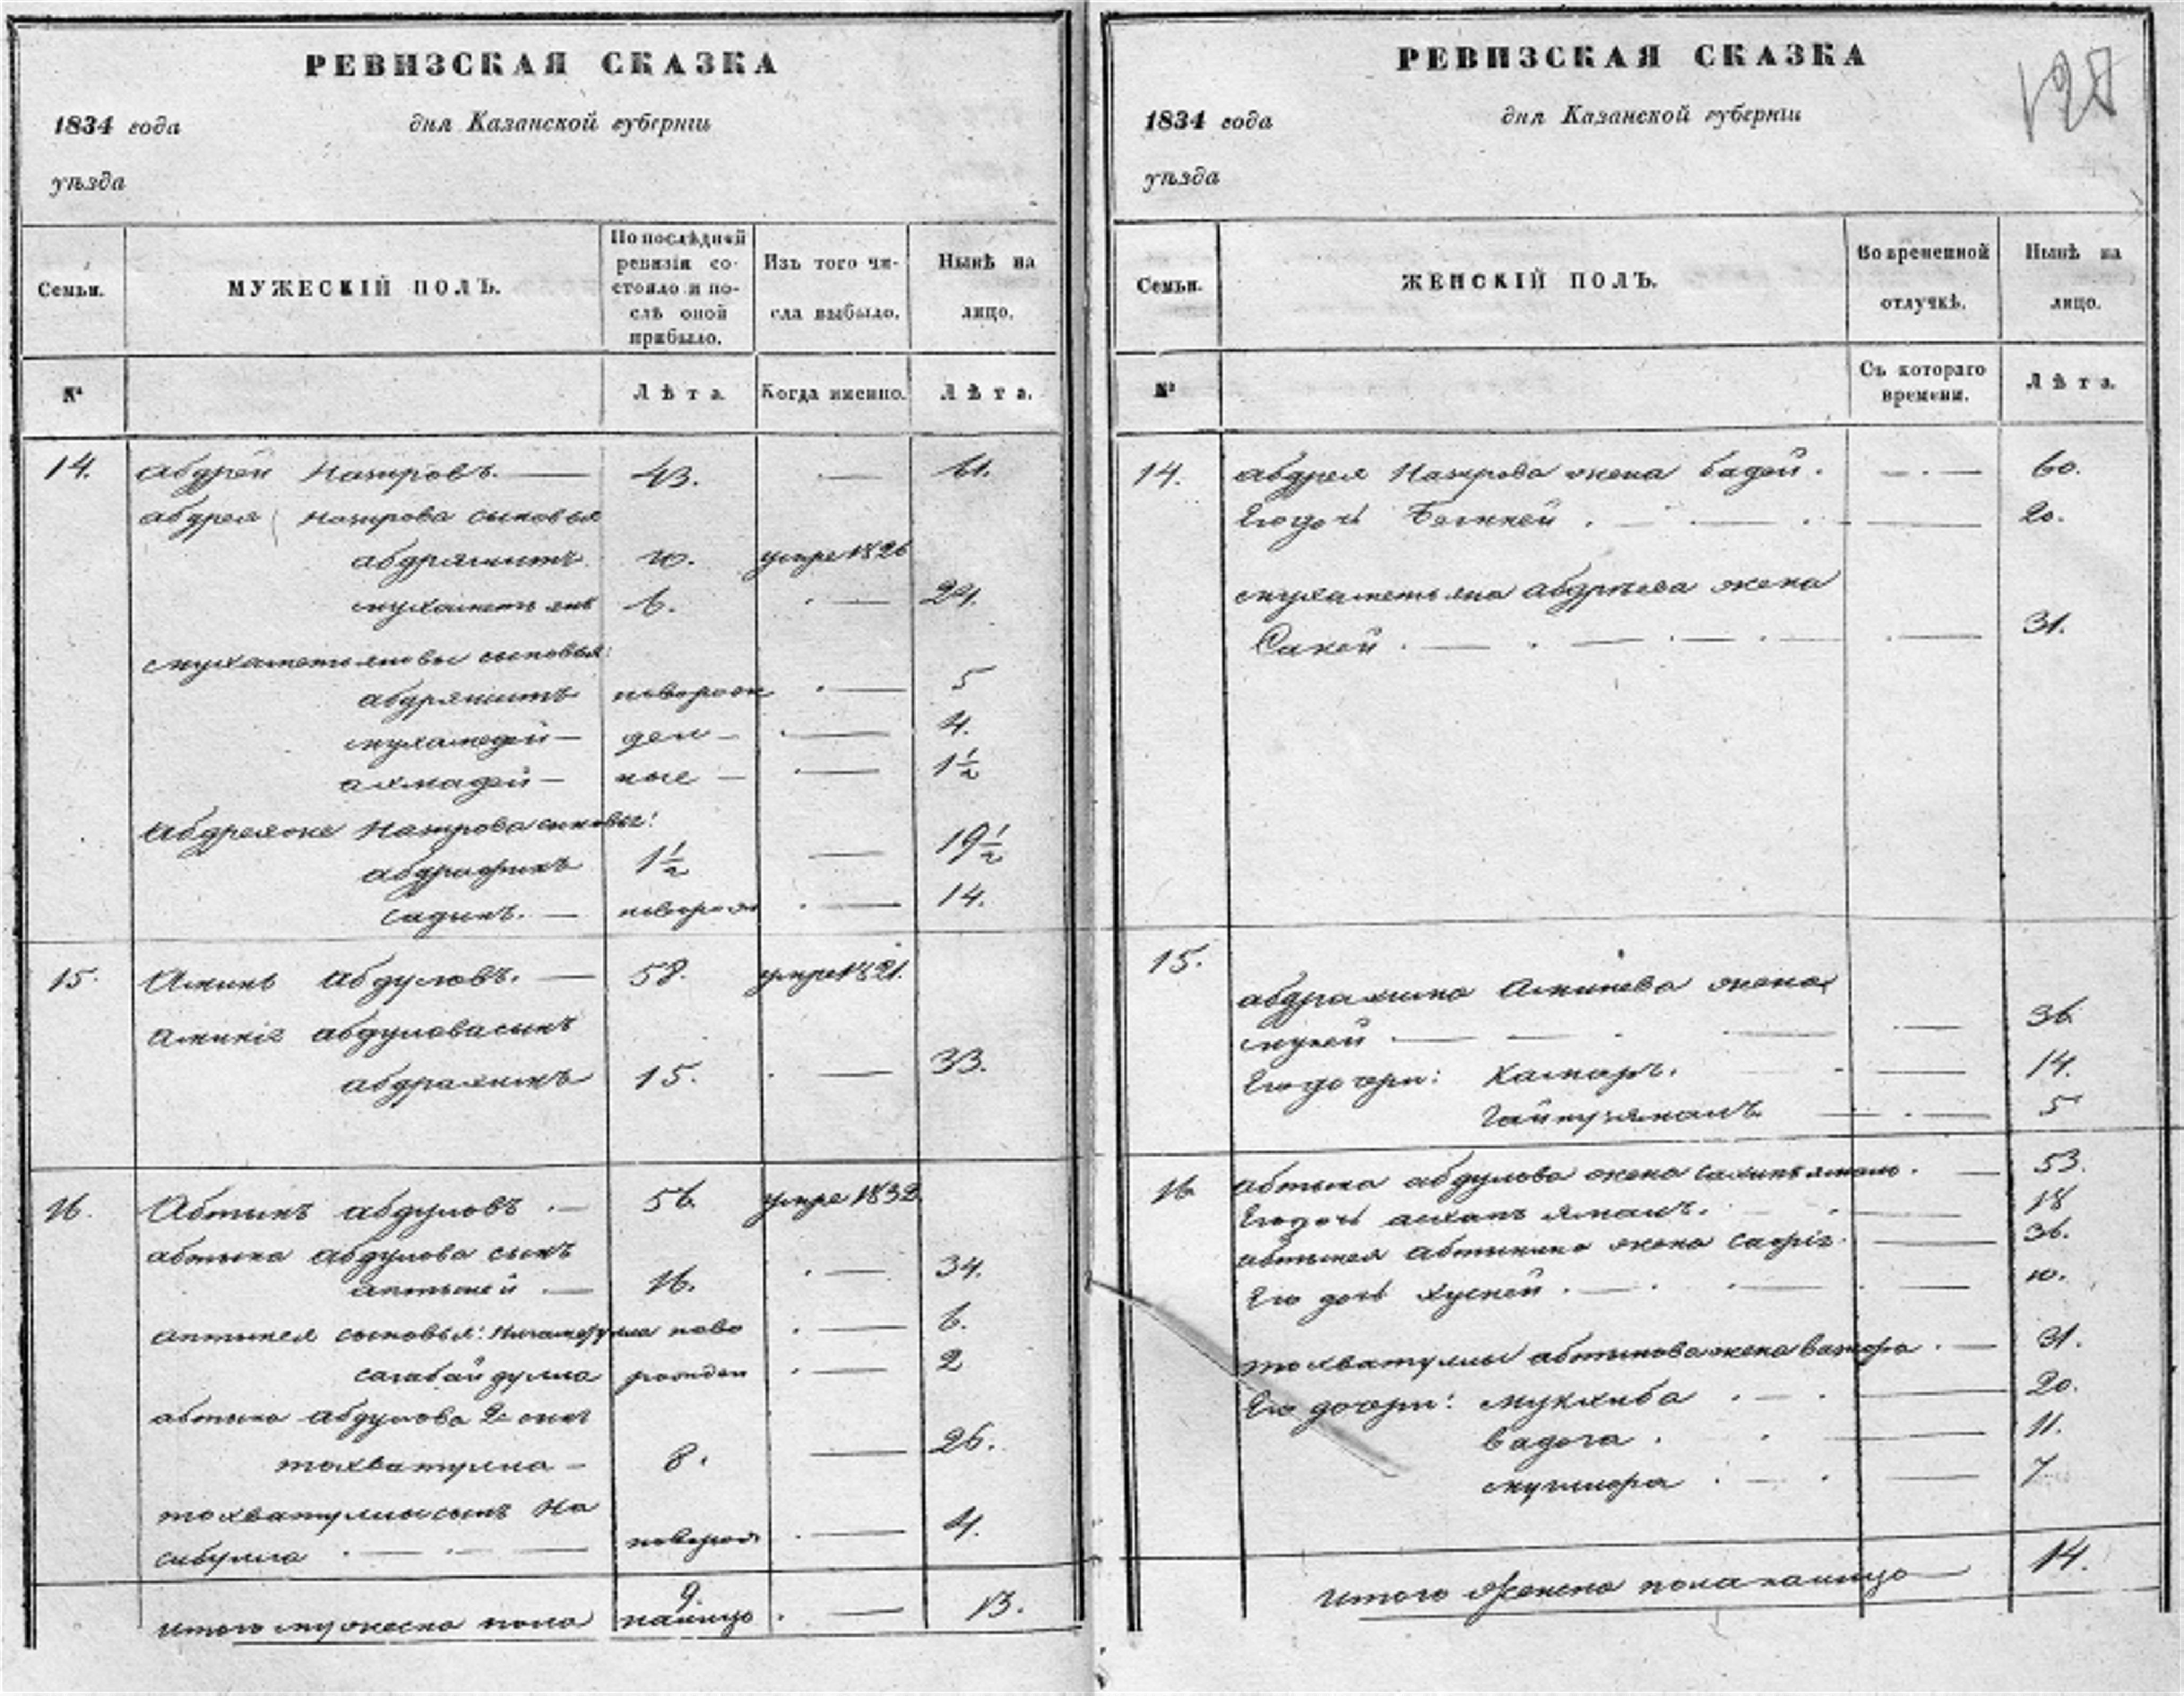 РЕВИЗСКАЯ СКАЗКА
1834 года дня Казанской губернiи
уѣзда
Семьи.
МУЖЕСКІЙ ПОЛЪ.
По послѣдней
ревизіи со-
стояло и по-
слѣ оной
прибыло.
Изъ того чи-
сла выбыло.
Нынѣ на
лицо.
№
Лѣта.
Когда именно.
Лѣта.
14. абдрей Назировъ. 43. 61.
абдрея Назирова сыновья
абдряшитъ 10. умре 1826
мухаметьянъ 6. 24.
мухаметьяновы сыновья:
абдряшитъ новорож 5
мухамедей ден 4.
ахмадей ные 1½
Абдрея же Назирова сыновья:
абдрафикъ 1½ 19½
садикъ. новорож 14.
15. Аминь абдуловъ. 58. умре 1821.
абдулова сынъ
абдрахимъ 15. 33.
16. Абтынъ абдуловъ 56. умре 1832
абтына абдулова сынъ
16. 34.
сыновья: ново 6.
рожден 2
абтына абдулова 2й сынъ
тохватулла 8. 26.
тохватуллы сынъ На
сибулла новорож 4.
9.
итого мужеска пола налицо 13.
РЕВИЗСКАЯ СКАЗКА
128
1834 года дня Казанской губернiи
уѣзда
Семьи.
ЖЕНСКІЙ ПОЛЪ.
Во временной
отлучкѣ.
Нынѣ на
лицо.
№
Съ котораго
времени.
Лѣта.
14. абдрея Назирова жена бадей. 60.
Его дочь 20.
мухаметьяна абдреева жена
Сакей 31.
15.
абдрахима Аминева жена
36
Его дочери: Камаръ. 14.
5
16 абтына абдулова жена 53.
Его дочь 18
жена 36.
Его дочь 10.
тохватуллы абтынова жена 31.
Его дочери: 20.
11.
7
итого женска пола налицо 14.